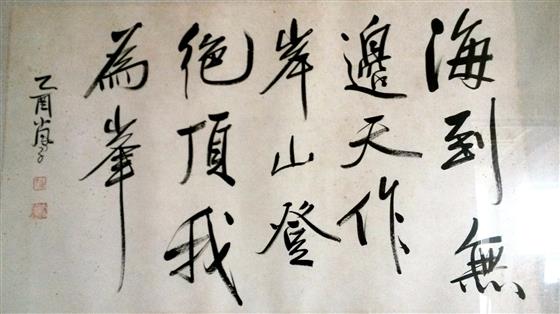 海到無
邊天作
岸山登
絕頂我
為峯
乙酉